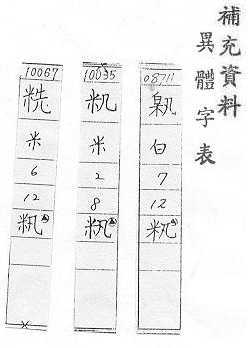 補充資料
異體字表
08711
白
7
12
籸
10035
米
2
8
籸
10067
米
6
12
籸